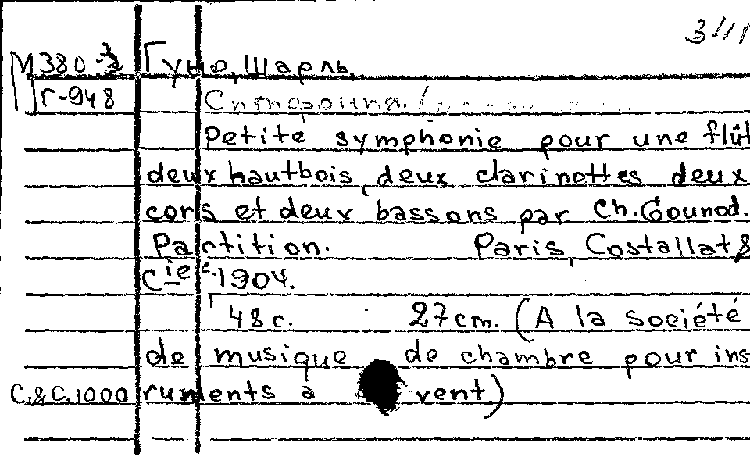 М380-3 Гуно, Шарль.
Г-948
Petite symphonie pour une flût
deux hautbois, deux clarinettes deux
cors et deux bassons par Ch. Gounod.
Partition. Paris, Costallat &
Cie 1904.
48 с. 27 cm. (A la société
de musique de chambre pour ins
C.&C.1000 ruments à vent)